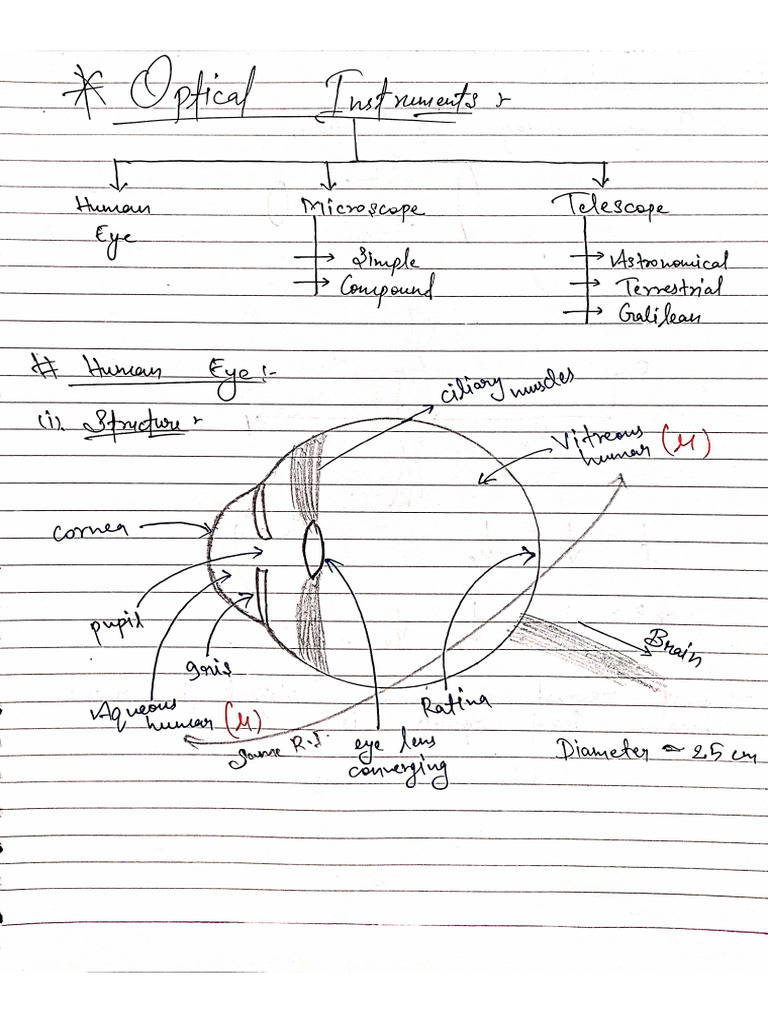 * Optical Instruments :-
Human Microscope Telescope
Eye
Simple Astronomical
Compound Terrestrial
Galilean
# Human Eye :-
(i). Structure :-
ciliary muscles
Vitreous
humar (μ)
cornea
pupil
Iris
Brain
Aqueous
humar (μ)
Ratina
Same R.I.
eye lens
converging
Diameter ≈ 2.5 cm